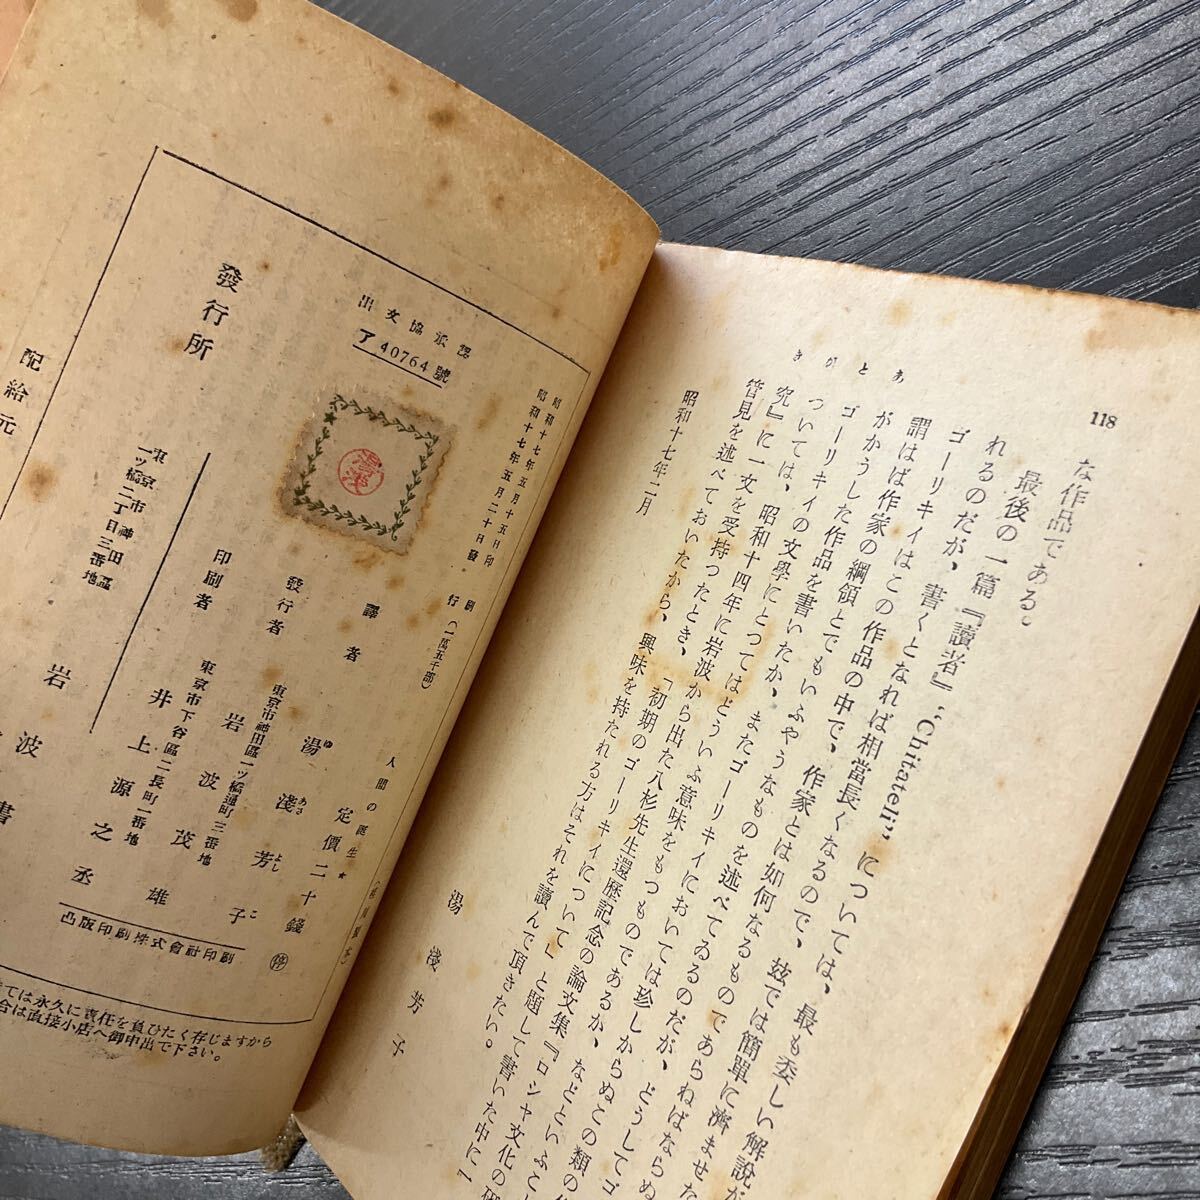 118
あとがき
な作品である。
最後の一篇『讀者』“Chitateli”については、最も委しい解説が
れるのだが、書くとなれば相當長くなるので、玆では簡單に濟ませた
ゴーリキイはこの作品の中で、作家とは如何なるものであらねばならぬ
謂はば作家の綱領とでもいふやうなものを述べてゐるのだが、どうしてゴ
がかうした作品を書いたか、またゴーリキイにおいては珍しからぬこの類の
ゴーリキイの文學にとつてはどういふ意味をもつものであるか、などといふこと
ついては、昭和十四年に岩波から出た八杉先生還歷記念の論文集『ロシヤ文化の研
究』に一文を受持つたとき、「初期のゴーリキイについて」と題して書いた中に一
管見を述べておいたから、興味を持たれる方はそれを讀んで頂きたい。
昭和十七年二月
湯淺芳子
出文協承認
ア40764號
昭和十七年五月十五日印刷
昭和十七年五月二十日發行(一萬五千部)
人間の誕生★
定價二十錢
停
譯者 湯淺芳子
ゆあさよしこ
發行者 東京市神田區一ツ橋通町三番地
岩波茂雄
印刷者 東京市下谷區二長町一番地
井上源之丞
凸版印刷株式會社印刷
發行所 東京市神田區
一ツ橋二丁目三番地
岩波書
配給元
ては永久に責任を負ひたく存じますから
合は直接小店へ御申出で下さい。